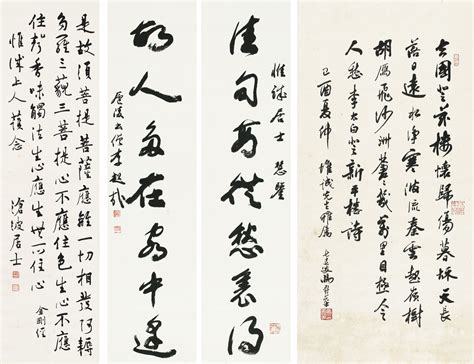 去國登茲樓懷歸傷暮秋天長
落日遠水淨寒波流秦雲起嶺樹
胡雁飛沙洲蒼蒼幾萬里目極令
人愁李太白登新平樓詩
己酉夏仲 維誠先生雅屬
惟誠居士 慧鑒
佳句 從愁裏得
故人多在客中逢
李超哉
是故須菩提菩薩應離一切相發阿耨
多羅三藐三菩提心不應住色生心不應
住聲香味觸法生心應生無所住心 金剛經
惟誠上人 念
滄波居士